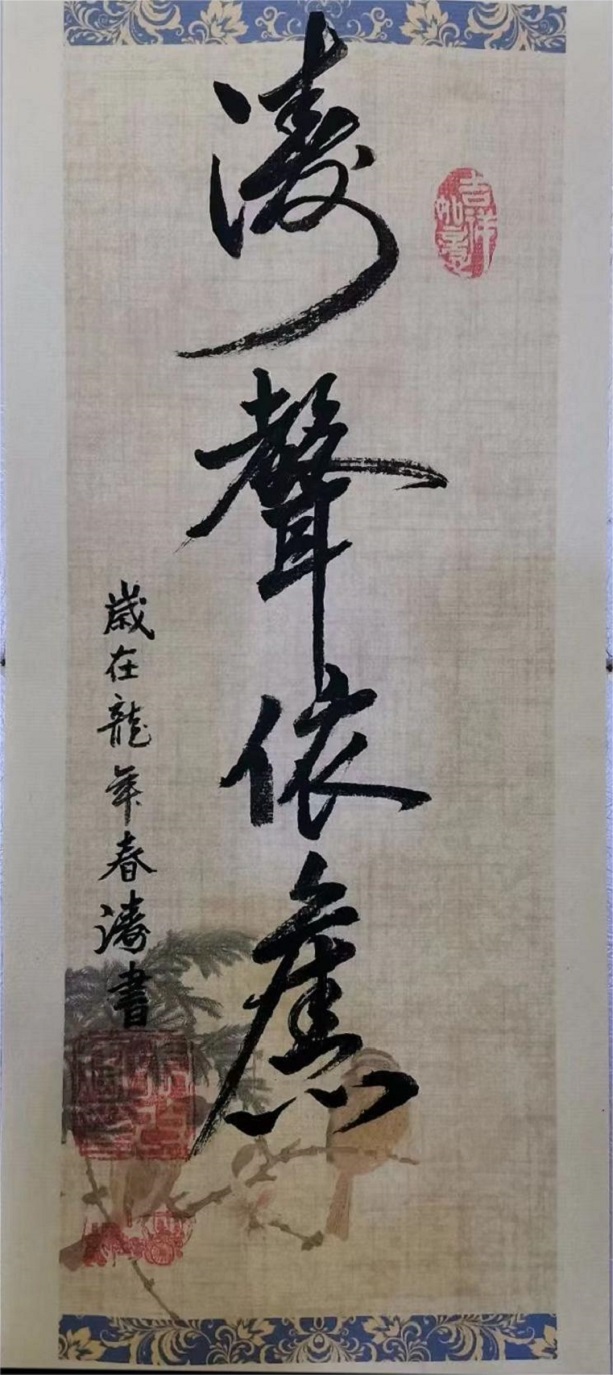 吉祥
如意
濤聲依舊
歲在龍年春濤書